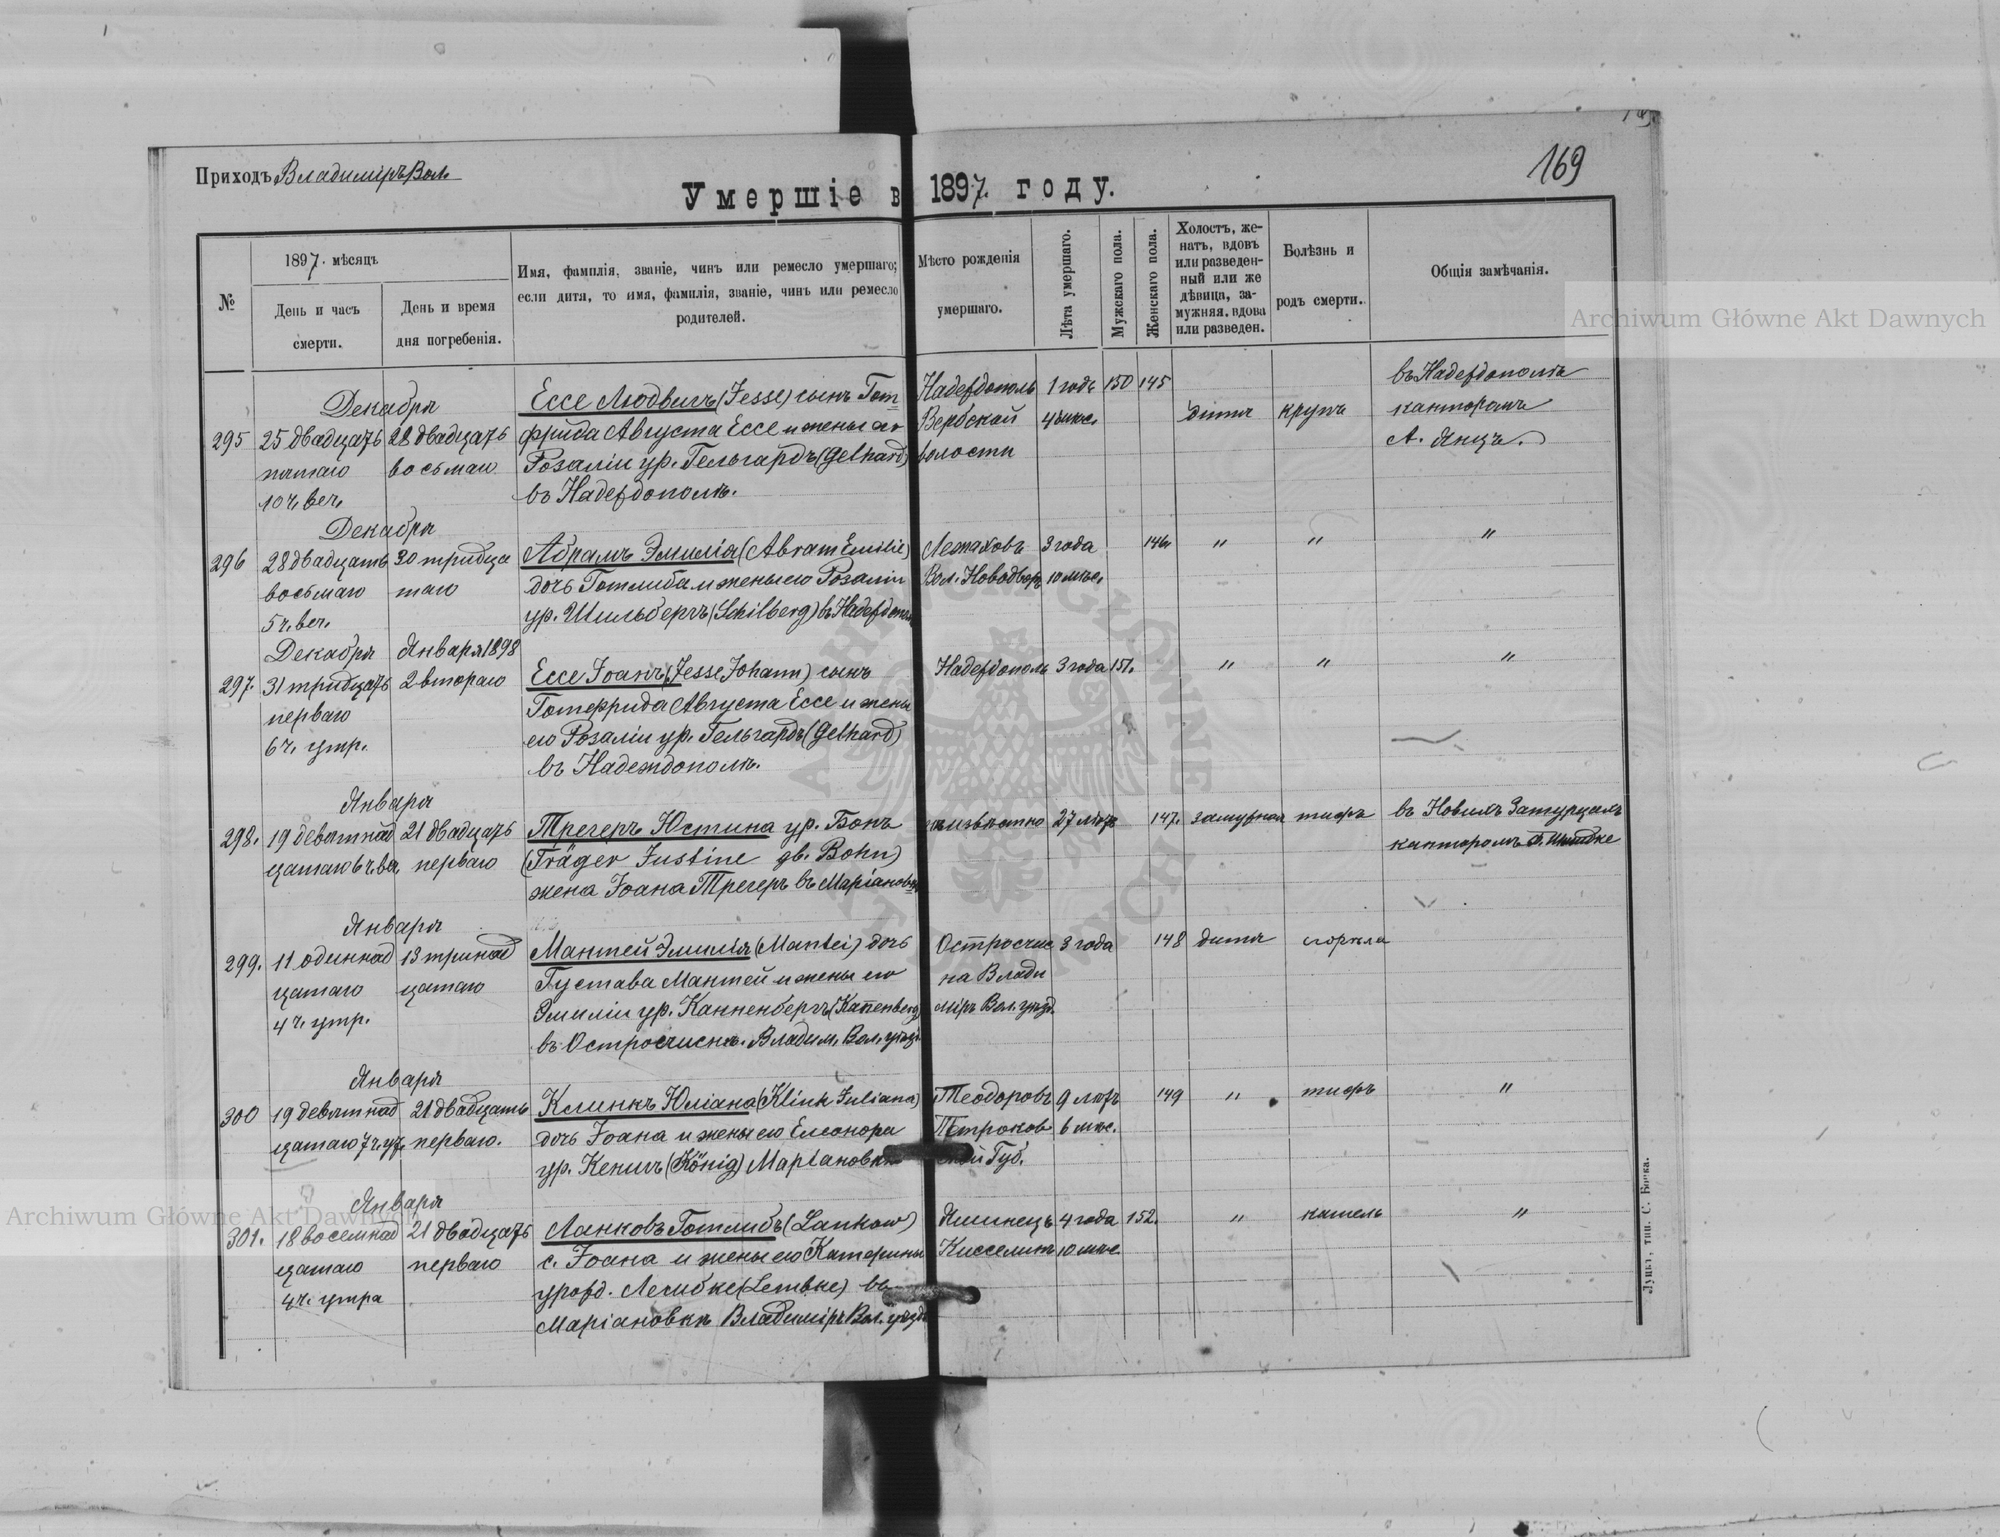 169
Приходъ ВладиміръВол.
Умершіе в 1897. году.
№
1897. мѣсяцъ
День и часъ
смерти.
День и время
дня погребенія.
Имя, фамилія, званіе, чинъ или ремесло умершаго;
если дитя, то имя, фамилія, званіе, чинъ или ремесло
родителей.
Мѣсто рожденія
умершаго.
Лѣта умершаго.
Мужскаго пола.
Женскаго пола.
Холостъ, же-
натъ, вдовъ
или разведен-
ный или же
дѣвица, за-
мужняя, вдова
или разведен.
Болѣзнь и
родъ смерти.
Общія замѣчанія.
Archiwum Główne Akt Dawnych
295
Декабря
25 двадцать
пятаго
10 ч. веч.
28 двадцать
восьмаго
Ессе Людвигъ (Jesse) сынъ Гот
фрида Августа Ессе и жены его
Розаліи ур. Гельгардъ (Gelhard)
въ Надеждополѣ.
Надеждополь
Вербской
волости
1 годъ
4 мѣс.
150
145
дитя
крупъ
въ Надеждополѣ
канторомъ
А. Янцъ.
296
Декабря
28 двадцать
восьмаго
5 ч. веч.
30 тридца
таго
Абрамъ Эмилія (Abram Emilie)
дочь Готлиба и жены его Розаліи
ур. Шильбергъ (Schilberg) въ Надеждопол
Лежаховъ
Вол. Новодворъ
3 года
10 мѣс.
146
"
"
"
297.
Декабря
31 тридцать
перваго
6 ч. утр.
Января 1898
2 втораго
Ессе Іоанъ (Jesse Johann) сынъ
Готфрида Августа Ессе и жены
его Розаліи ур. Гельгардъ (Gelhard)
въ Надеждополѣ.
Надеждополь
3 года
151.
"
"
"
298.
Января
19 девятнад
цатаго 6 ч. ве.
21 двадцать
перваго
Трегеръ Юстина ур. Бонъ
(Träger Justine gb. Bohn)
жена Іоана Трегеръ въ Маріановкѣ
неизвѣстно
27 лѣтъ
147.
замужняя
тифъ
въ Новыхъ Затурцахъ
канторомъ
299.
Января
11 одиннад
цатаго
4 ч. утр.
13 тринад
цатаго
Мантей Эмилія (Mantei) дочь
Густава Мантей и жены его
Эмиліи ур. Канненбергъ (Kannenberg)
въ Остросчисна. Владим. Вол. уѣзд.
Остросчис
на Влади
міръ Вол. уѣзд.
3 года
148
дитя
сгорѣла
300
Января
19 девятнад
цатаго 7 ч. ут.
21 двадцать
перваго.
Клинкъ Юліана (Klink Juliana)
дочь Іоана и жены его Елеонора
ур. Кенигъ (König) Маріановкѣ
Теодоровъ
Петроков
ской Губ.
9 лѣтъ
6 мѣс.
149
"
тифъ
"
301.
Января
18 восемнад
цатаго
4 ч. утра
21 двадцать
перваго
Ланковъ Готлибъ (Lankow)
с. Іоана и жены его Катерины
урожд. Лембке (Lembke) въ
Маріановкѣ Владиміръ Вол. уѣзда
Яминецъ
Киселинъ
4 года
10 мѣс.
152.
"
кашель
"
Луцкъ, тип. С. Бонка.
Archiwum Główne Akt Dawnych